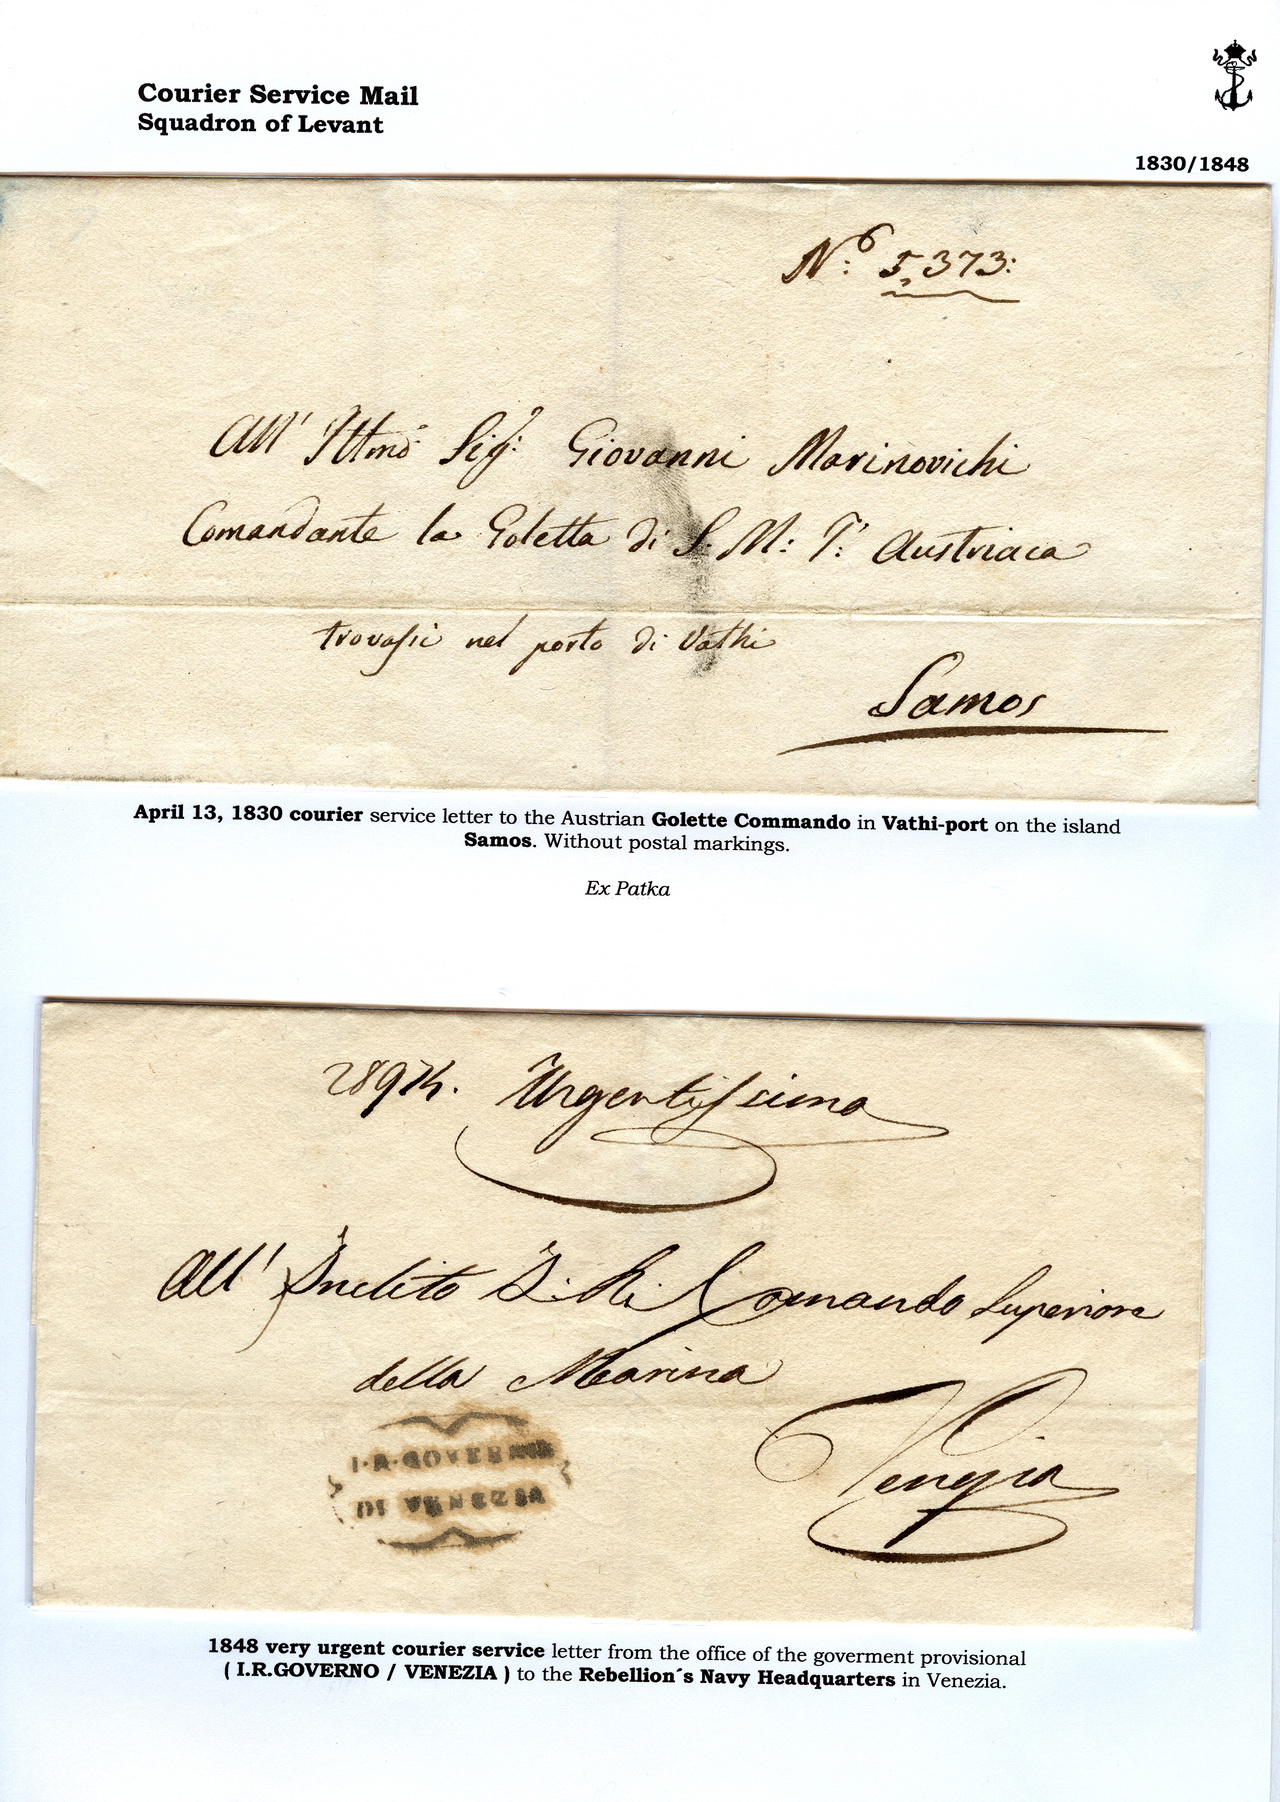 Courier Service Mail
Squadron of Levant
1830/1848
No: 5,373:
All' Illmo Sigr: Giovanni Marinovichi
Comandante la Goletta di S. M: I: Austriaca
trovasi nel porto di Vathi
Samos
April 13, 1830 courier service letter to the Austrian Golette Commando in Vathi-port on the island
Samos. Without postal markings.
Ex Patka
Urgentissima
All' Inclito I: R: Comando Superiore
della Marina
I·R·GOVERNO
DI VENEZIA
Venezia
1848 very urgent courier service letter from the office of the goverment provisional
( I.R.GOVERNO / VENEZIA ) to the Rebellion´s Navy Headquarters in Venezia.